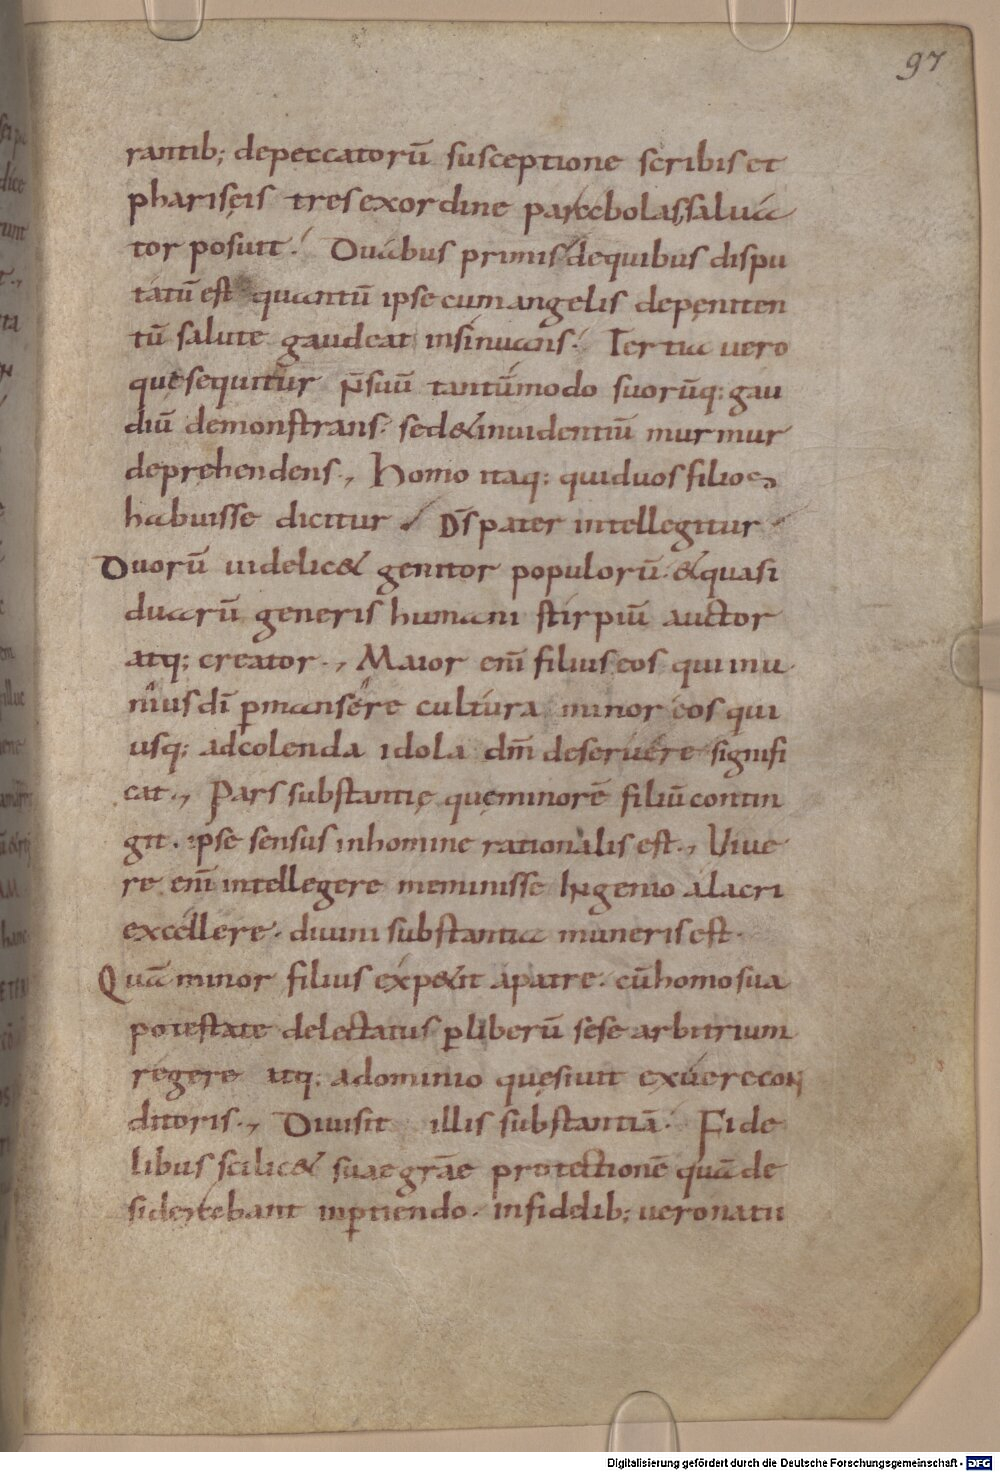 97
rantib; depeccatorū susceptione scribis et
phariseis tres ex ordine parecbolas salua
tor posuit. Duabus primis de quibus dispu
tatū est quantū ipse cum angelis de peniten
tū salute gaudeat insinuans. Tertia uero
que sequitur n̄ suū tantūmodo suorūq; gau
diū demonstrans. sed & inuidentiū murmur
deprehendens., Homo itaq; qui duos filios
habuisse dicitur. d̄s pater intellegitur
Duorū uidelic& genitor populorū. & quasi
duarū generis humani stirpiū auctor
atq; creator., Maior eni̅ filius eos qui in u
nius dī ꝑmansere cultura minor eos qui
usq; ad colenda idola dm̄ deseruere signifi
cat., Pars substantie que minorē filiū contin
git. ipse sensus in homine rationalis est., Uiue
re eni̅ intellegere meminisse Ingenio alacri
excellere. diuini substantia muneris est.
Quā minor filius expe&iit a patre. cū homo sua
potestate delectatus ꝑ liberū sese arbitrium
regere atq; a dominio quesiuit exuere con
ditoris., Diuisit illis substantiā. Fide
libus scilic& suae grāe protectionē quā de
siderebant inꝑtiendo. infidelib; uero natu
Digitalisierung gefördert durch die Deutsche Forschungsgemeinschaft - DFG